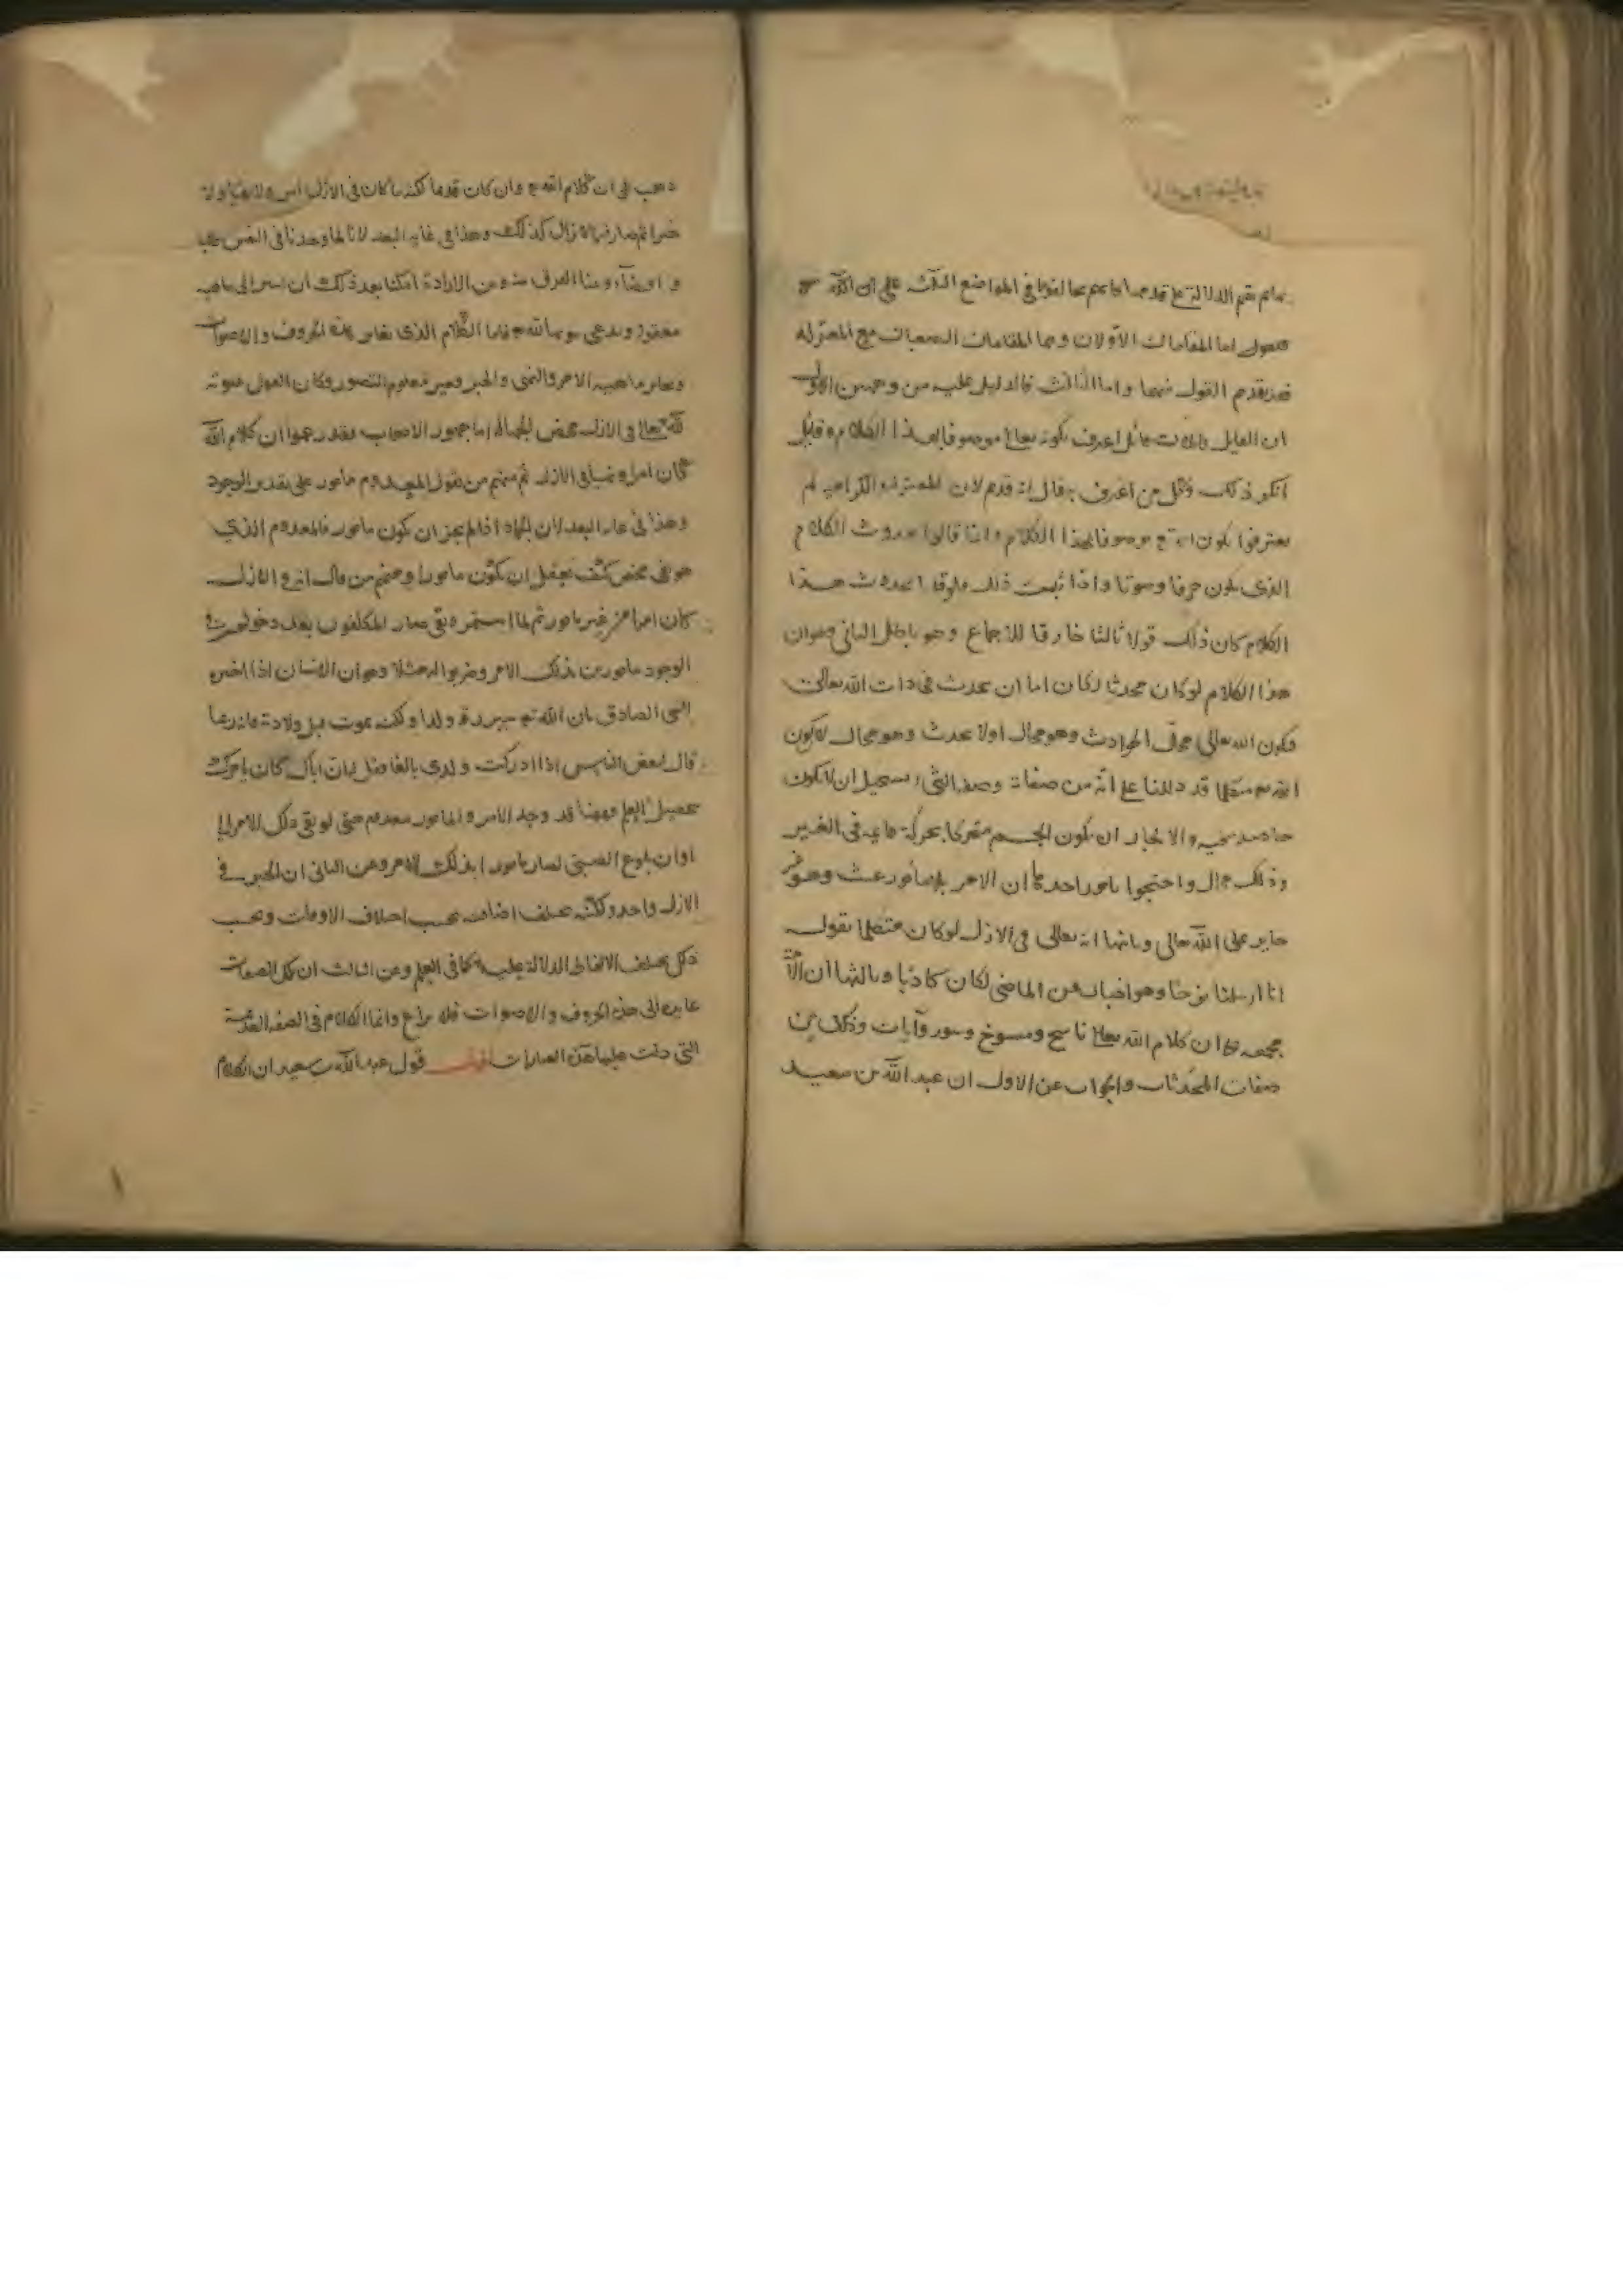 ما لم نقم الدلالة على قدمها كما هم مخالفونا في المواضع الثلثة على ان
فنقول اما المقامات الأولان وهما المقامان الصعبان مع المعتزلة
فقد تقدم القول فيهما واما الثالث فالدليل عليه من وجهين الاول
ان القايل قايل اعرف بكونه تعالى موصوفا بهذا الكلام وقايل
انكر ذلك وكل من اعرف به قال انه قديم لان المعتزلة والكرامية لم
يعترفوا بكون الله تع موصوفا بهذا الكلام وانما قالوا بحدوث الكلام
الذى يكون حرفا وصوتا واذا ثبت ذلك فلو قلنا بحدوث هذا
الكلام كان ذلك قولا ثالثا خارقا للاجماع وهو باطل الثانى وهو ان
هذا الكلام لو كان محدثا لكان اما ان يحدث فى ذات الله تعالى
فيكون الله تعالى محل الحوادث وهو محال اولا يحدث وهو محال لان كون
الله تع متكلما قد دللنا على انه من صفاته وصفة الشى يستحيل ان لا يكون
حاصله فيه والا لجاز ان يكون الجسم متحركا بحركة قايمة فى الغير
وذلك محال واحتجوا بامور احدها ان الامر بلا مأمور عبث وهو غير
جايز على الله تعالى وثانيها انه تعالى فى الازل لو كان متكلما بقوله
انا ارسلنا نوحا وهو اخبار عن الماضى لكان كاذبا وثالثها ان الأمة
مجمعة على ان كلام الله تعالى ناسخ ومنسوخ وسور وآيات وذلك من
صفات المحدثات والجواب عن الاول ان عبد الله بن سعيد
ذهب الى ان كلام الله تع وان كان قديما لكنه ما كان فى الازل امرا ولا نهيا ولا
خبرا ثم صار فيما لا يزال كذلك وهذا فى غاية البعد لانا لما وجدنا فى النفس طلبا
و اقتضاء وبينا الفرق بينه وبين الارادة امكننا بعد ذلك ان نشير الى ماهيه
معقولة وندعى ثبوتها لله تع فاما الكلام الذى يغاير هذه الحروف والاصوات
ويغاير ماهية الامر والنهى والخبر فغير معلوم التصور وكان القول بثبوته
لله تعالى فى الازل محض الجهالة اما جمهور الاصحاب فقد زعموا ان كلام الله
كان امرا ونهيا فى الازل ثم منهم من يقول المعدوم مأمور على تقدير الوجود
وهذا فى غاية البعد لان الجماد اذا لم يجز ان يكون مأمورا فالمعدوم الذي
هو نفى محض كيف يعقل ان يكون مأمورا ومنهم من قال انه فى الازل
كان امرا من غير مأمور ثم لما استمر وبقى صار المكلفون بعد دخولهم فى
الوجود مأمورين بذلك الامر وضربوا له مثلا وهو ان الانسان اذا اخبره
النبى الصادق بان الله تع سيرزقه ولدا ولكنه يموت قبل ولادته فانه ربما
قال لبعض الناس اذا ادركت ولدى بالغا فقل له ان اباك كان يامرك
بتحصيل العلم فههنا قد وجد الامر والمأمور معدوم حتى لو بقى ذلك الامر الى
اوان بلوغ الصبى لصار مأمورا بذلك الامر وعن الثانى ان الخبر فى
الازل واحد ولكنه يختلف اضافته بحسب اختلاف الاوقات وبحسب
ذلك يختلف الالفاظ الدالة عليه كما فى العلم وعن الثالث ان تلك الصفات
عايدة الى هذه الحروف والاصوات فلا نزاع وانما الكلام فى الصفة القديمة
التى دلت عليها هذه العبارات اقول قول عبد الله بن سعيد ان الكلام